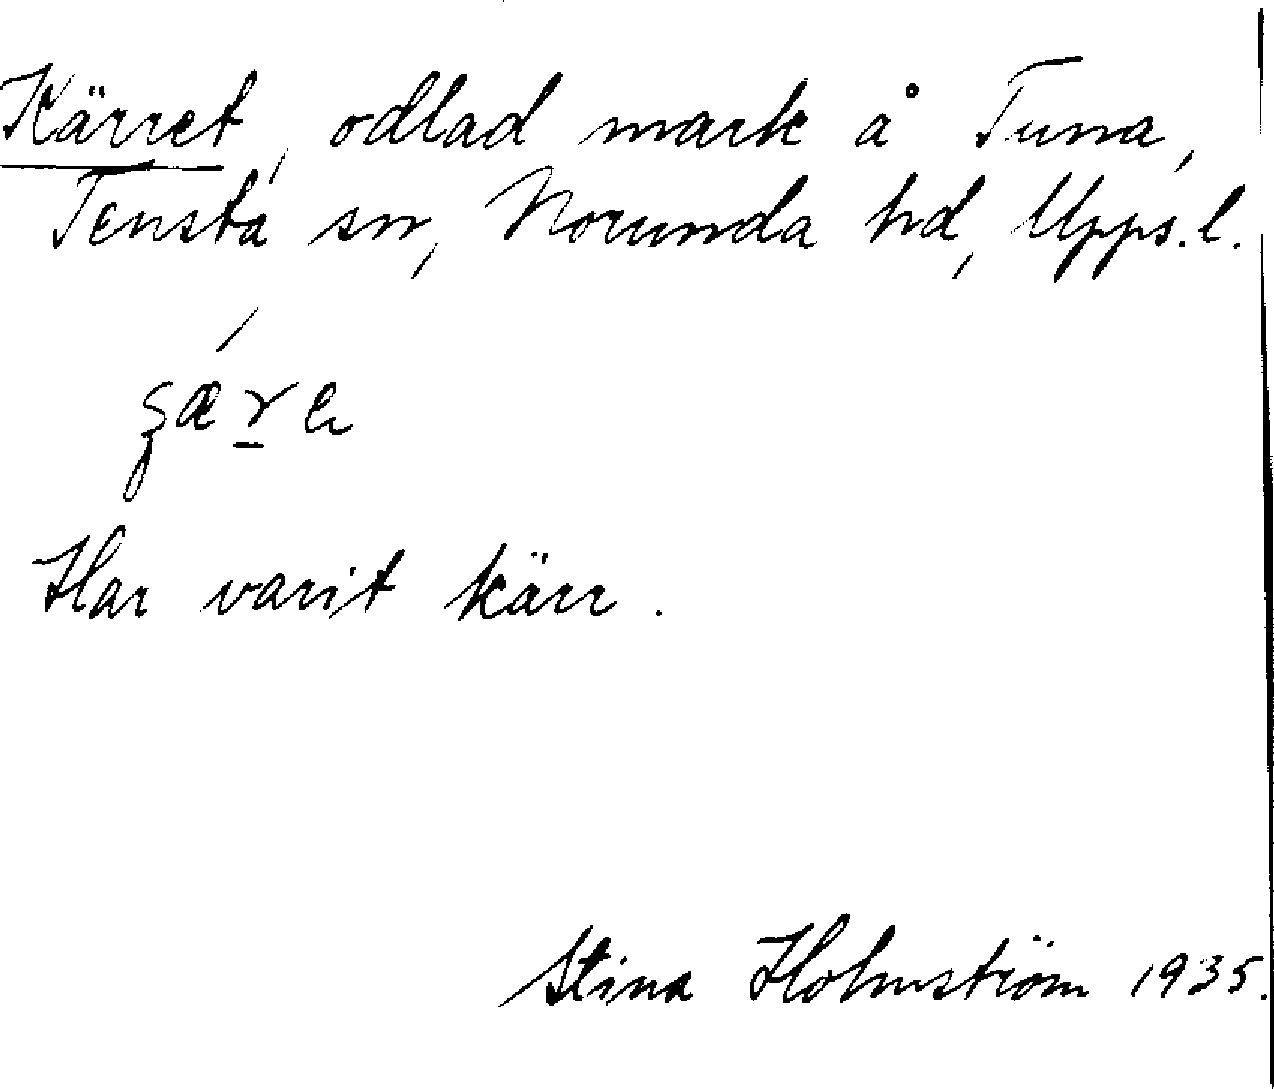 Kärret, odlad mark å Tuna,
Tensta sn, Norunda hd, Upps.l.
Har varit kärr.
Stina Holmström 1935.